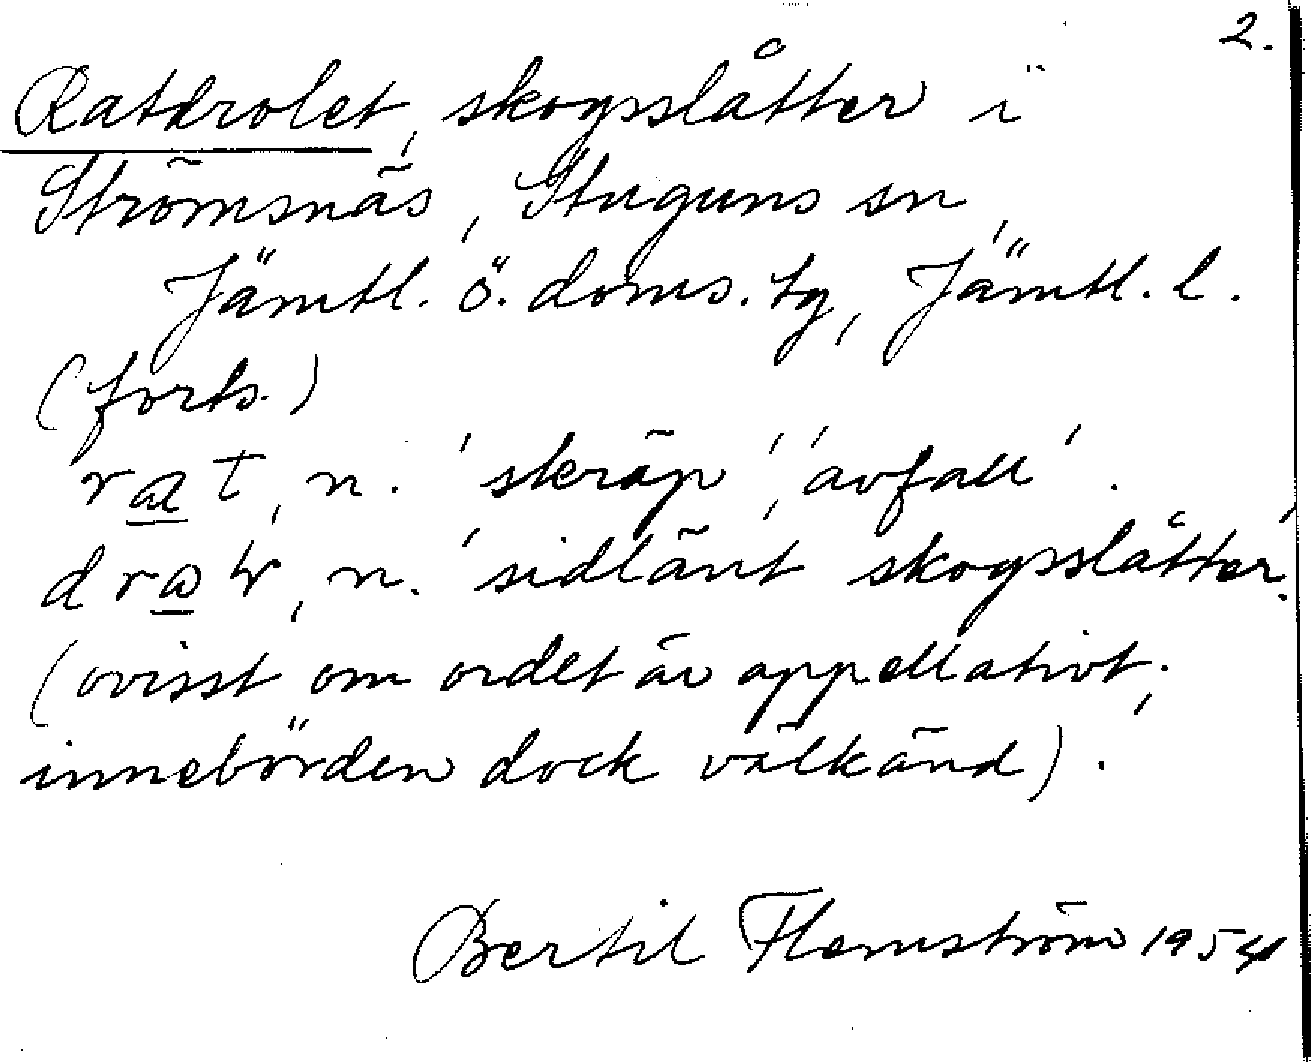 2.
Ratdrolet, skogsslåtter i
Strömsnäs, Stuguns sn,
Jämtl. ö. doms. tg, Jämtl. l.
(forts.)
rat, n. 'skräp', 'avfall'.
n. 'sidlänt skogsslåtter'.
(ovisst om ordet är appellativt;
innebörden dock välkänd).
Bertil Flemström 1954